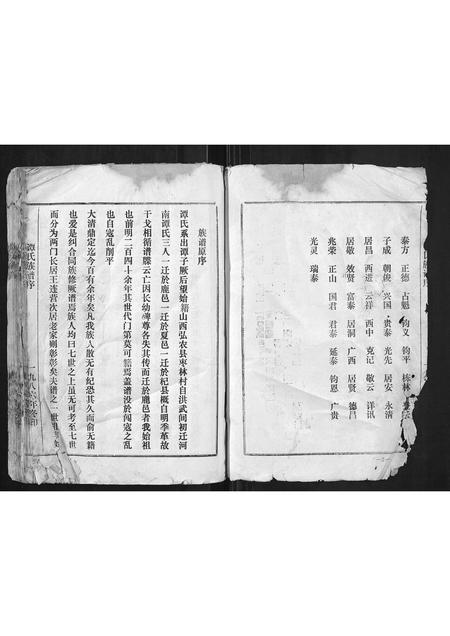 泰方 正德 占魁 钧义 钧平 栋林
子成 朝俊 兴国 贵泰 光先 居安 永清
居昌 西进 云祥 西中 克记 敬云 详讯
居敬 效贤 富泰 居洞 广西 居贤 德昌
兆荣 正山 国君 君泰 延泰 钧恩 广贵
光灵 瑞泰
族谱原序
谭氏系出谭子厥后望始籍山西弘农县枣林村自洪武间初迁河
南谭氏三人一迁於鹿邑一迁於夏邑一迁於杞县概自明季革故
干戈相循谱牒云亡因长幼尊各失其传而迁於鹿邑者我始祖
也前明二百四十余年其世代门第莫可籍焉盖谱没於闯寇之乱
也自寇乱削平
大清鼎定迄今百有余年矣凡我族人散无有纪恐其久而俞无籍
也爰是纠合同族修厥谱焉族人均曰七世之上虽无可考至七世
而分为两门长居王连营次居老家则彰彰矣夫谱之一
谭氏族谱序
一九八六年冬印